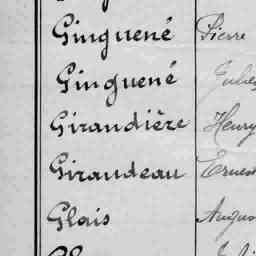 Ginguené Pierre
Ginguené Jules
Girandière Henry
Giraudeau Ernest
Glais